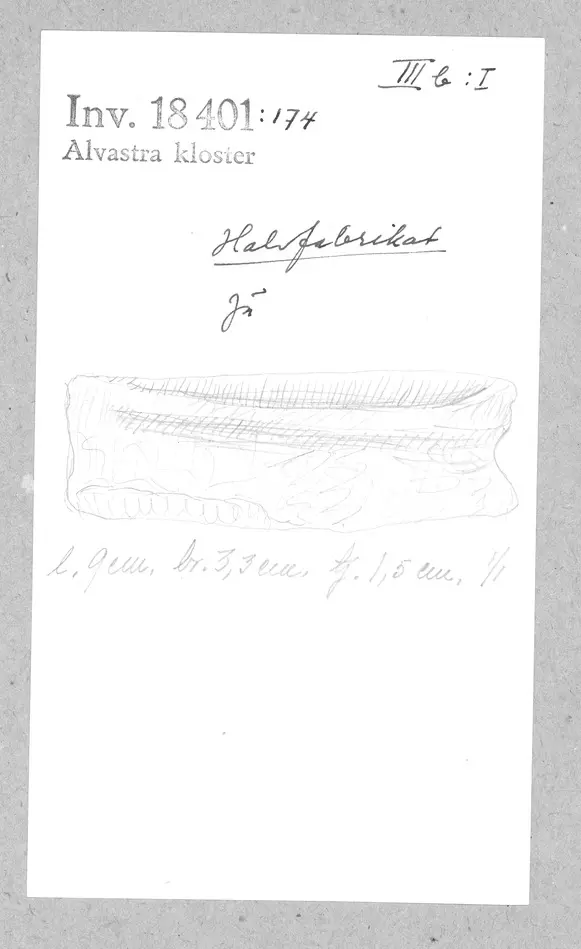 III b : I
Inv. 18 401:174
Alvastra kloster
Halvfabrikat
l. 9 cm. br. 3,3 cm. tj. 1,5 cm. 1/1